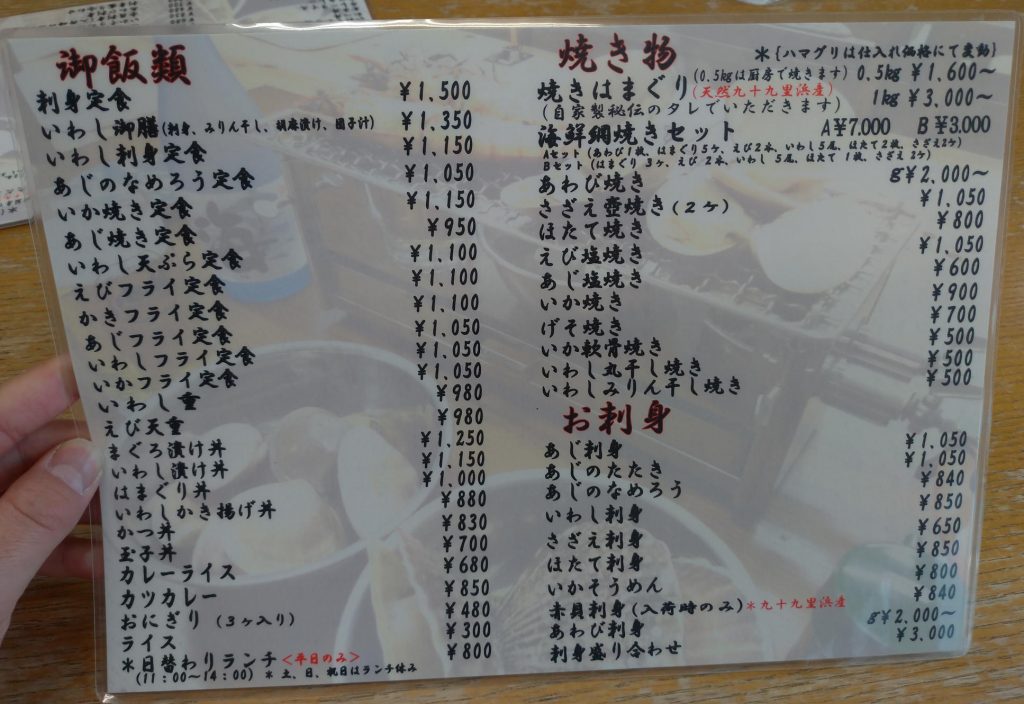 御飯類
刺身定食 ¥1,500
いわし御膳(刺身、みりん干し、胡麻漬け、団子汁) ¥1,350
いわし刺身定食 ¥1,150
あじのなめろう定食 ¥1,050
いか焼き定食 ¥1,150
あじ焼き定食 ¥950
いわし天ぷら定食 ¥1,100
えびフライ定食 ¥1,100
かきフライ定食 ¥1,100
あじフライ定食 ¥1,050
いわしフライ定食 ¥1,050
いかフライ定食 ¥1,050
いわし重 ¥980
えび天重 ¥980
まぐろ漬け丼 ¥1,250
いわし漬け丼 ¥1,150
はまぐり丼 ¥1,000
いわしかき揚げ丼 ¥880
かつ丼 ¥830
玉子丼 ¥700
カレーライス ¥680
カツカレー ¥850
おにぎり (3ヶ入り) ¥480
ライス ¥300
*日替わりランチ<平日のみ> ¥800
(11:00~14:00) *土、日、祝日はランチ休み
焼き物 *{ハマグリは仕入れ価格にて変動}
焼きはまぐり(0.5kgは厨房で焼きます) 0.5kg ¥1,600~
(天然九十九里浜産) 1kg ¥3,000~
(自家製秘伝のタレでいただきます)
海鮮網焼きセット A¥7,000 B¥3,000
Aセット (あわび1枚、はまぐり5ケ、えび2本、いわし5尾、ほたて2枚、さざえ2ケ)
Bセット (はまぐり3ケ、えび2本、いわし5尾、ほたて1枚、さざえ2ケ)
あわび焼き g¥2,000~
さざえ壺焼き(2ケ) ¥1,050
ほたて焼き ¥800
えび塩焼き ¥1,050
あじ塩焼き ¥600
いか焼き ¥900
げそ焼き ¥700
いか軟骨焼き ¥500
いわし丸干し焼き ¥500
いわしみりん干し焼き ¥500
お刺身
あじ刺身 ¥1,050
あじのたたき ¥1,050
あじのなめろう ¥840
いわし刺身 ¥850
さざえ刺身 ¥650
ほたて刺身 ¥850
いかそうめん ¥800
赤貝刺身(入荷時のみ)*九十九里浜産 ¥840
あわび刺身 g¥2,000~
刺身盛り合わせ ¥3,000